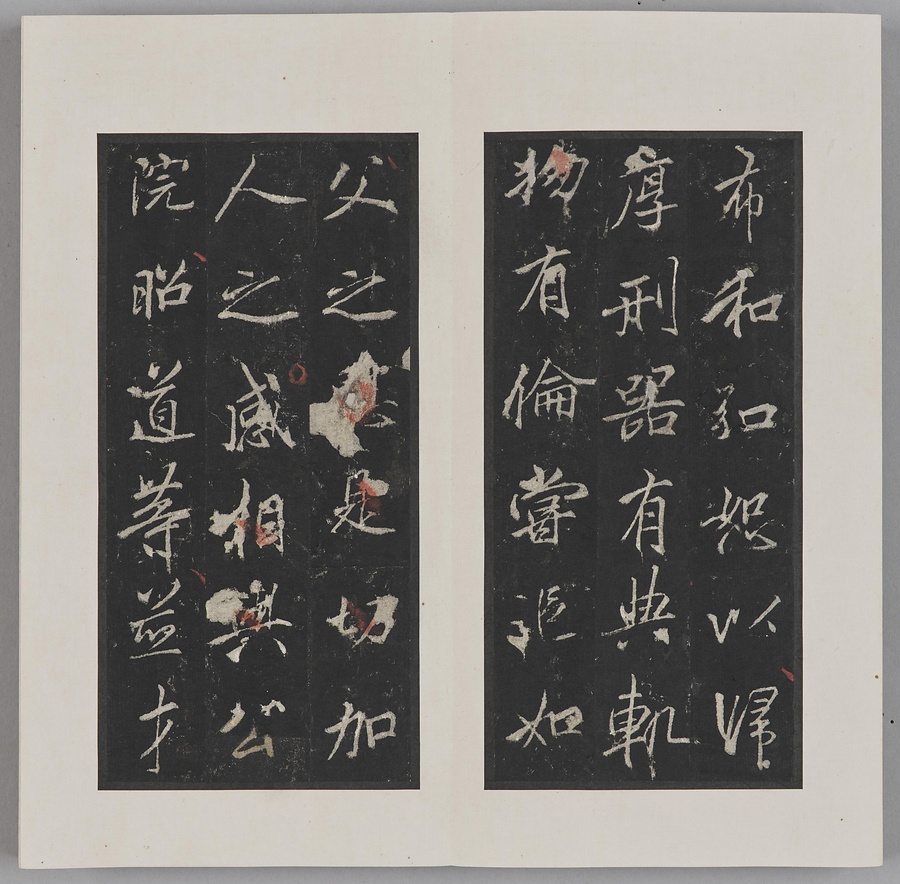 布和弘恕以歸
厚刑器有典軌
物有倫嘗追如
父之是切加
人之感相與公
院昭道等並才